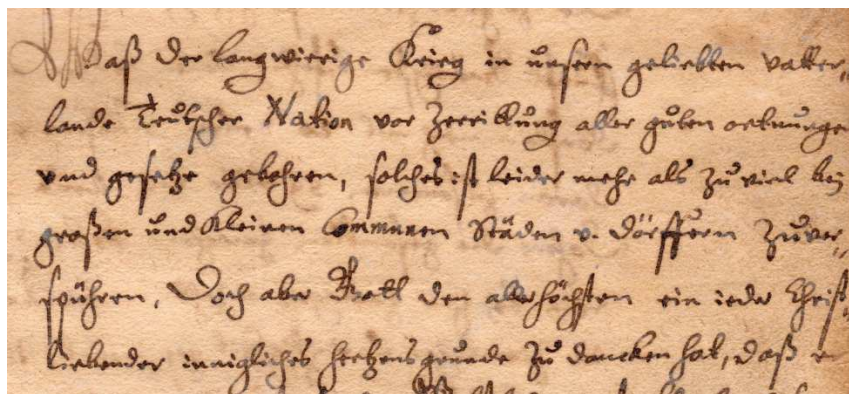 Daß der langwierige Krieg in unsern geliebten vatter-
lande Teutscher Nation vor Zerrittung aller guten ortnunge
und gesetze gebohren, solches ist leider mehr als zu viel bey
großen und Kleinen Communen Städen v. dörffern zuver-
spühren, Doch aber Gott den allerhöchsten ein ieder Christ-
liebender innigliches hertzens grunde zu dancken hat, daß er